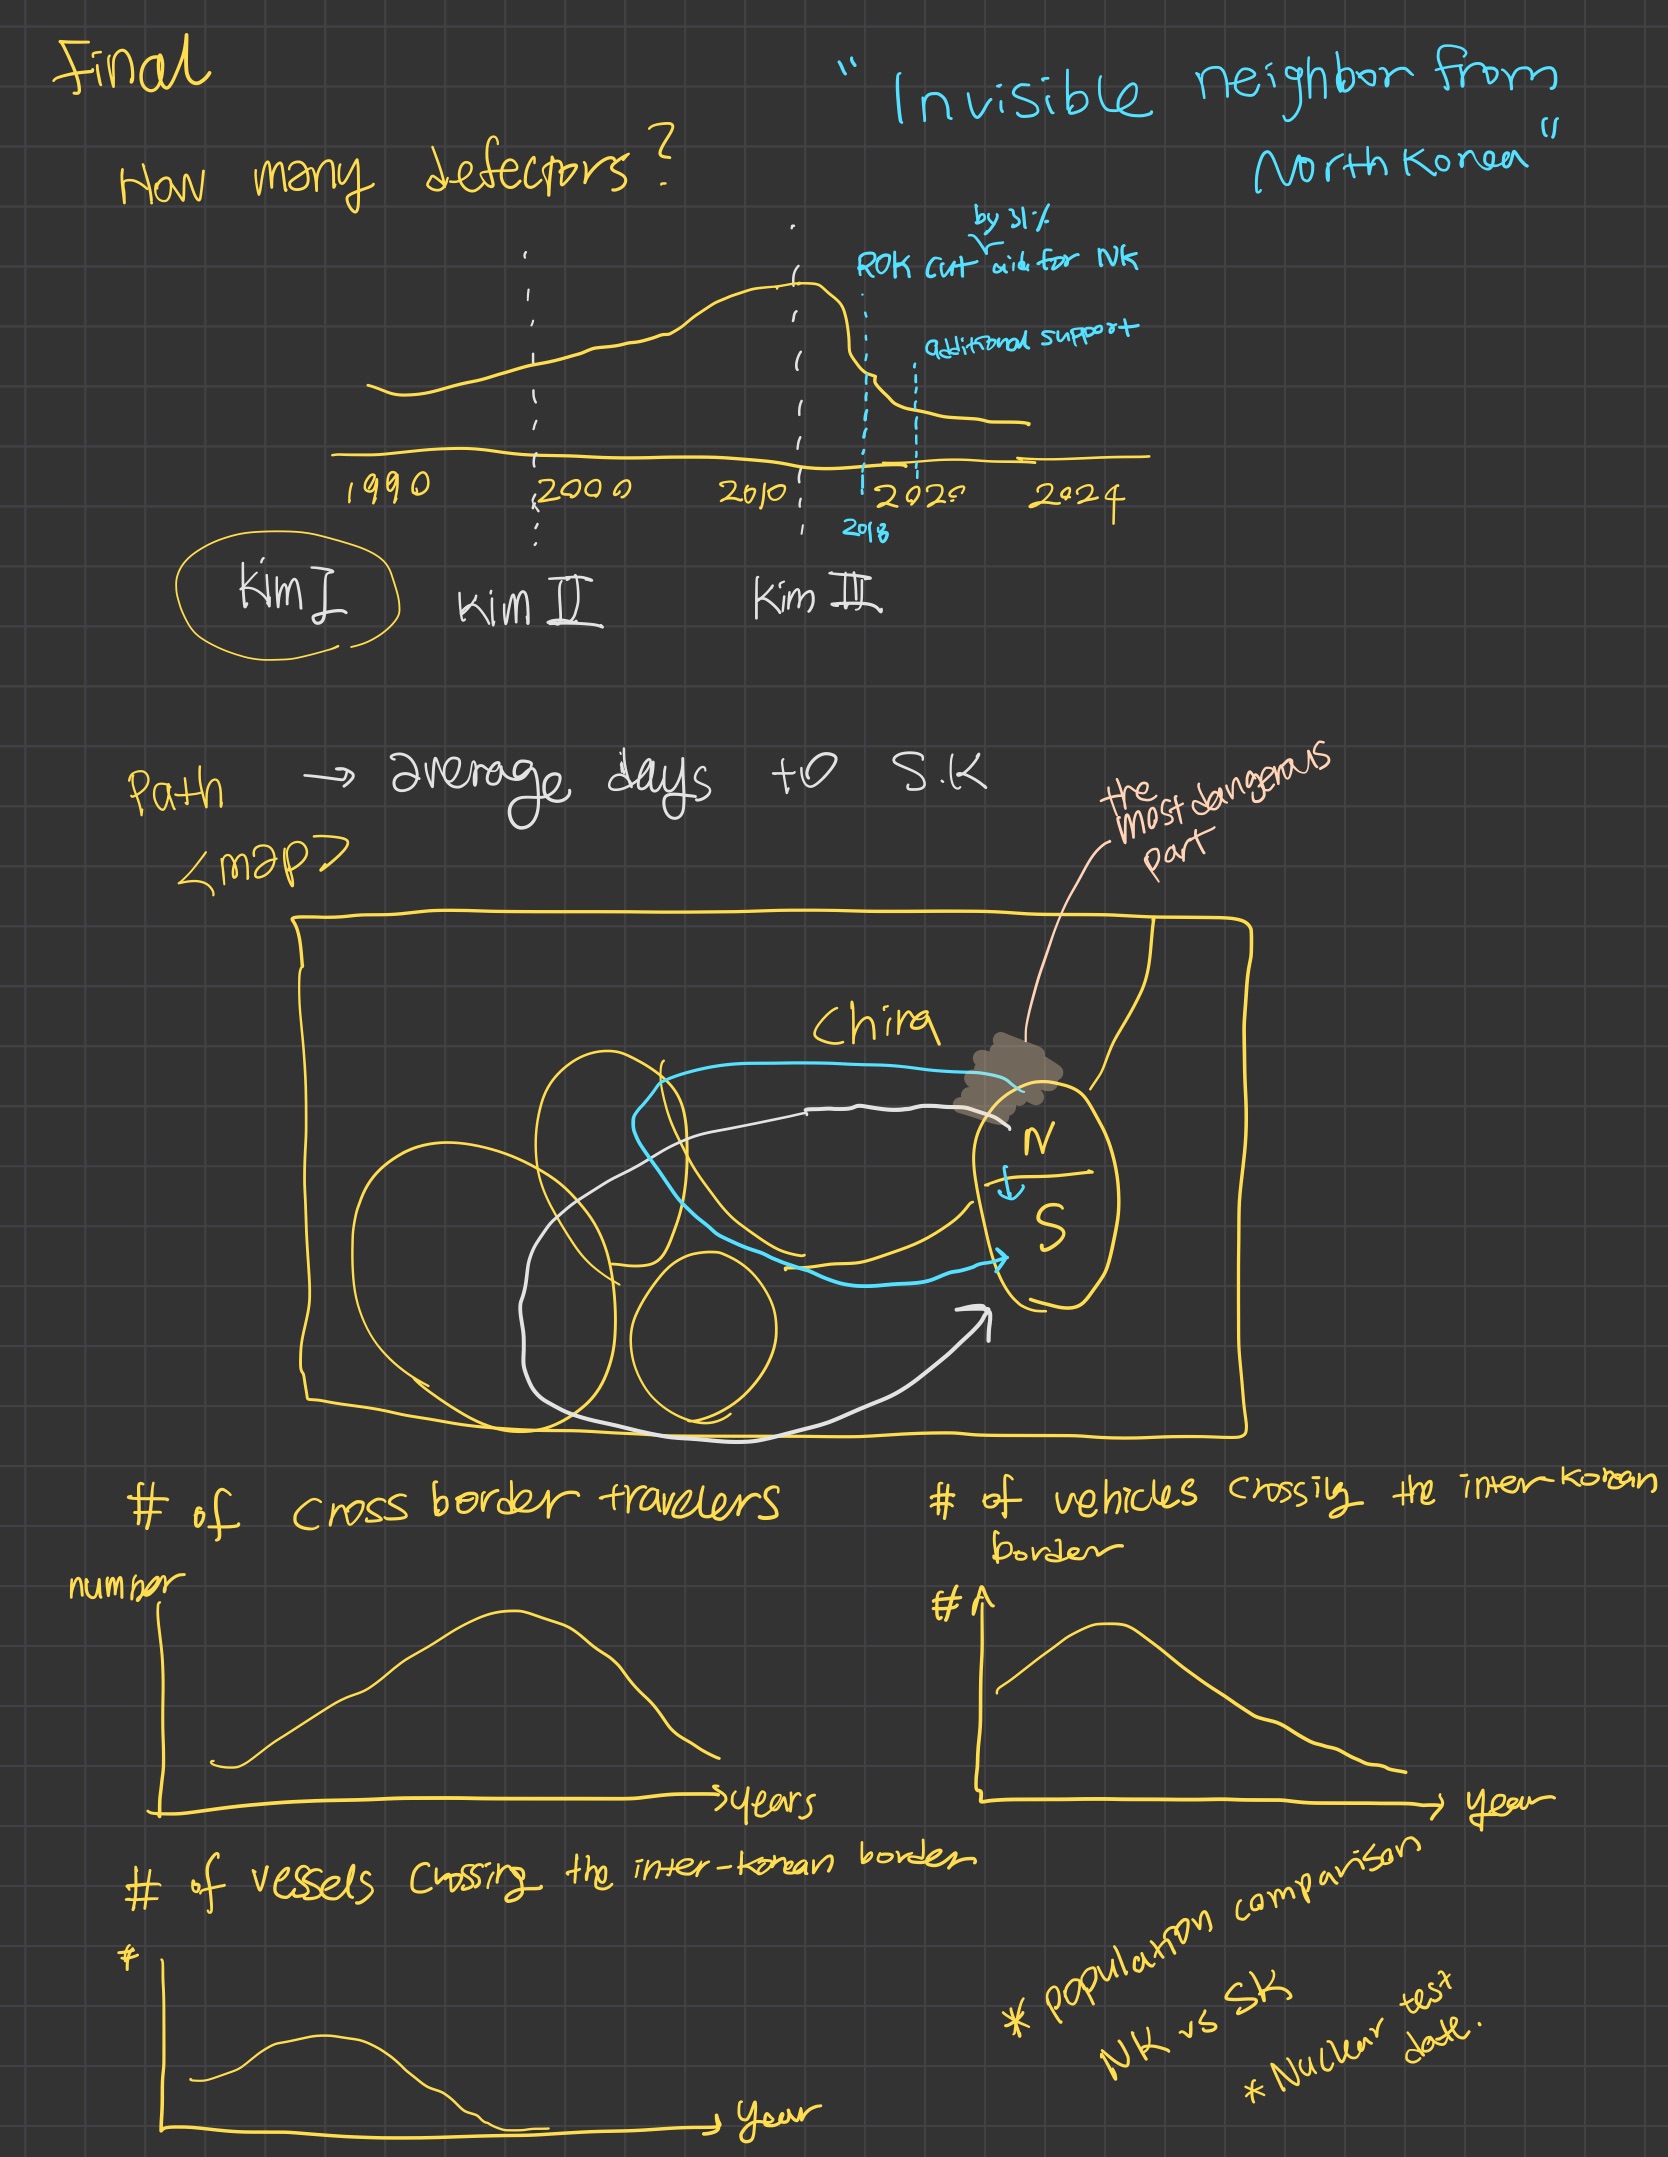 Final
" Invisible neighbor from
North Korea "
How many defectors?
by 31%
ROK cut aid for NK
additional support
1990 2000 2010 2020 2024
2018
Kim I Kim II Kim III
Path → average days to S.K
<map>
the
most dangerous
part
China
N
S
# of cross border travelers
number
years
# of vehicles crossing the inter-Korean
border
#
year
# of vessels crossing the inter-Korean border
#
year
* population comparison
NK vs SK
* Nuclear test
date.